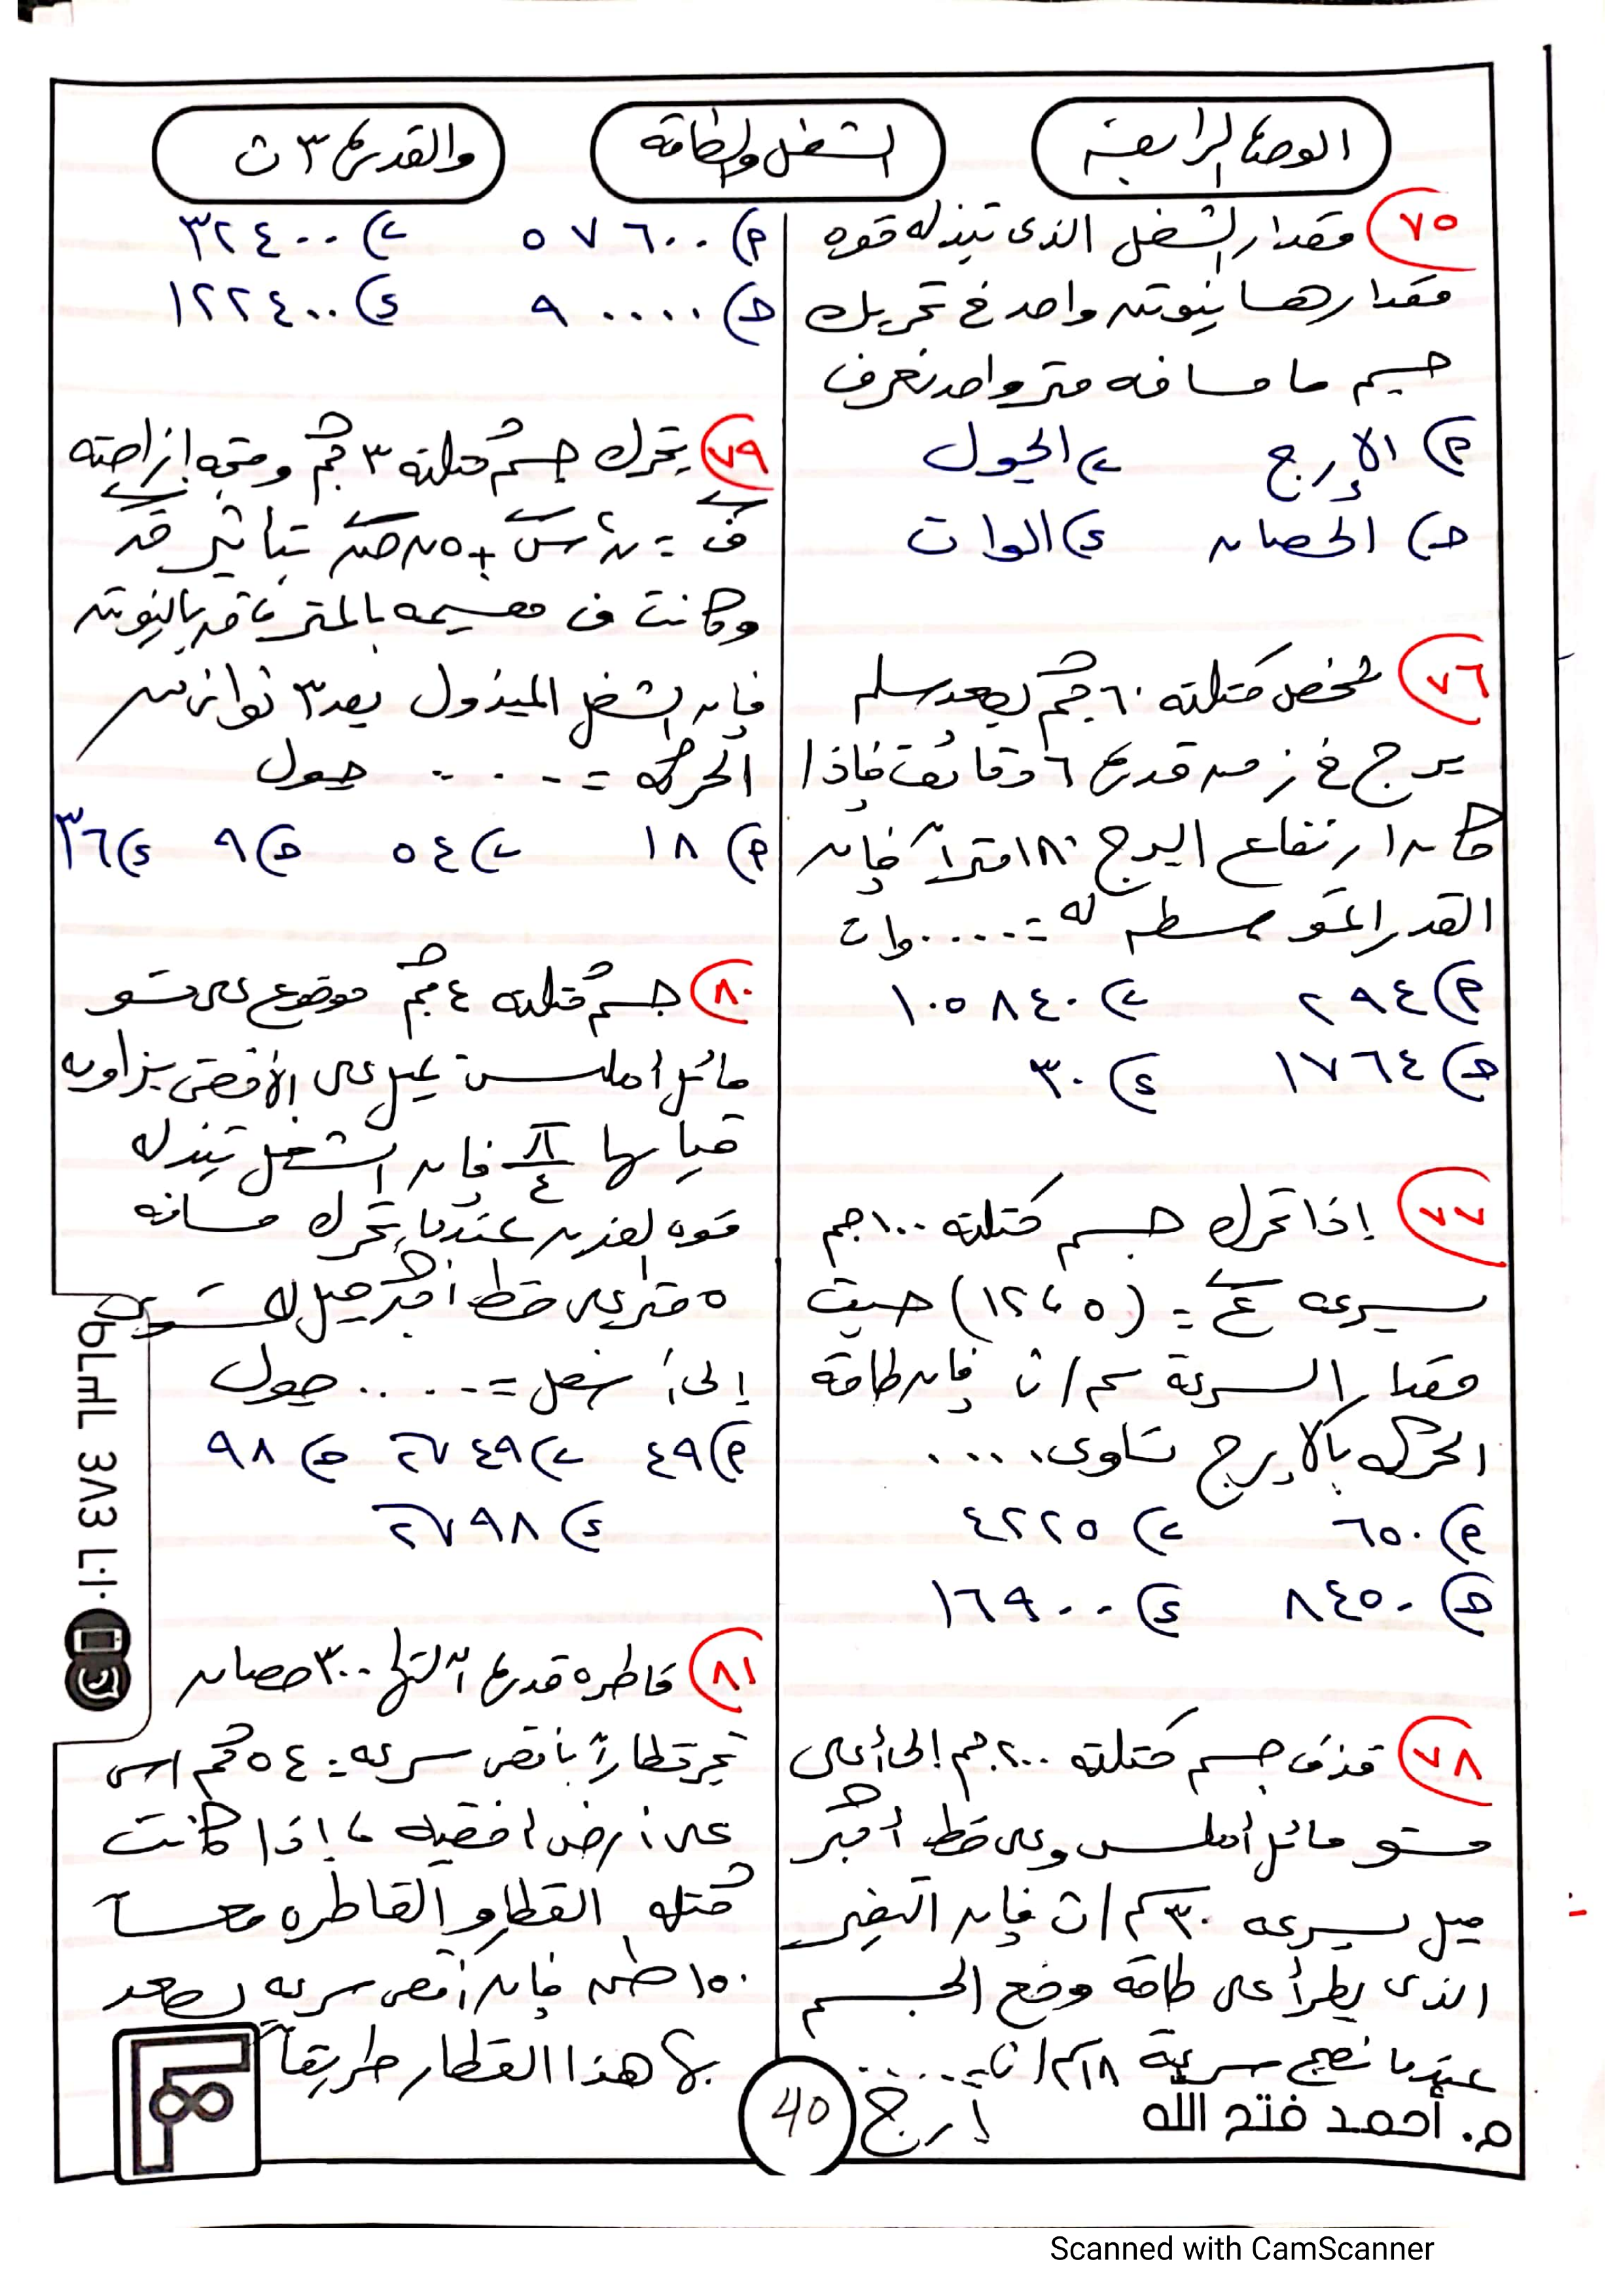 الوحدة الرابعة
الشغل والطاقة
والقدرة ٣ ث
٧٥ مقدار الشغل الذى تبذله قوه
مقدارها نيوتن واحد فى تحريك
جسم ما مسافه متر واحد تعرف
أ) الإرج ب) الجول
ج) الحصان د) الوات
٧٦ شخص كتلته ٦٠ كجم يصعد سلم
برج فى زمن قدره ٦ دقائق فإذا
كان ارتفاع البرج ١٨٠ متراً فإن
القدرة المتوسطه له = ..... وات
أ) ٢٩٤ ب) ١٠٥٨٤٠
ج) ١٧٦٤ د) ٣٠
٧٧ إذا تحرك جسم كتلته ١٠٠ جم
بسرعه ع = (٥ ، ١٢) حيث
مقدار السرعة سم/ث فإن طاقة
الحركه بالإرج تساوى ....
أ) ٦٥٠ ب) ٤٢٢٥
ج) ٨٤٥٠ د) ١٦٩٠٠
٧٨ قذف جسم كتلته ٢٠٠ جم إلى أعلى
مستو مائل أملس وعلى خط أكبر
ميل بسرعه ٣٠ سم/ث فإن التغير
الذى يطرأ على طاقة وضع الجسم
عندما تصبح سرعته ١٨ سم/ث = .....
إرج
أ) ٥٧٦٠٠ ب) ٣٢٤٠٠
ج) ٩٠٠٠٠ د) ١٢٢٤٠٠
٧٩ يتحرك جسم كتلته ٣ كجم ومتجه إزاحته
ف = ن٢ س + ٥ن ص بتأثير ق
وكانت ف مقيسه بالمتر ، ق بالنيوتن
فإن الشغل المبذول بعد ٣ ثوان من
الحركه = ..... جول
أ) ١٨ ب) ٥٤ ج) ٩ د) ٣٦
٨٠ جسم كتلته ٤ كجم موضوع على مستو
مائل أملس يميل على الأفقى بزاويه
قياسها π/٤ فإن الشغل تبذله
قوه لوزن عندما يتحرك مسافه
٥ متر على خط أكبر ميل للمستوى
إلى أسفل = ..... جول
أ) ٤٩ ب) ٤٩√٢ ج) ٩٨
د) ٩٨√٢
٨١ قاطره قدره آلتها ٣٠٠ حصان
تجر قطاراً بأقصى سرعه = ٥٤ كم/س
على أرض افقيه ، إذا كانت
كتله القطار و القاطره معاً
١٥٠ طن فإن أقصى سرعه يصعد
بها هذا القطار طريقاً
٠١٠٦ ٤٨٤ ٦٣٦٥
40
م. أحمد فتح الله
Scanned with CamScanner